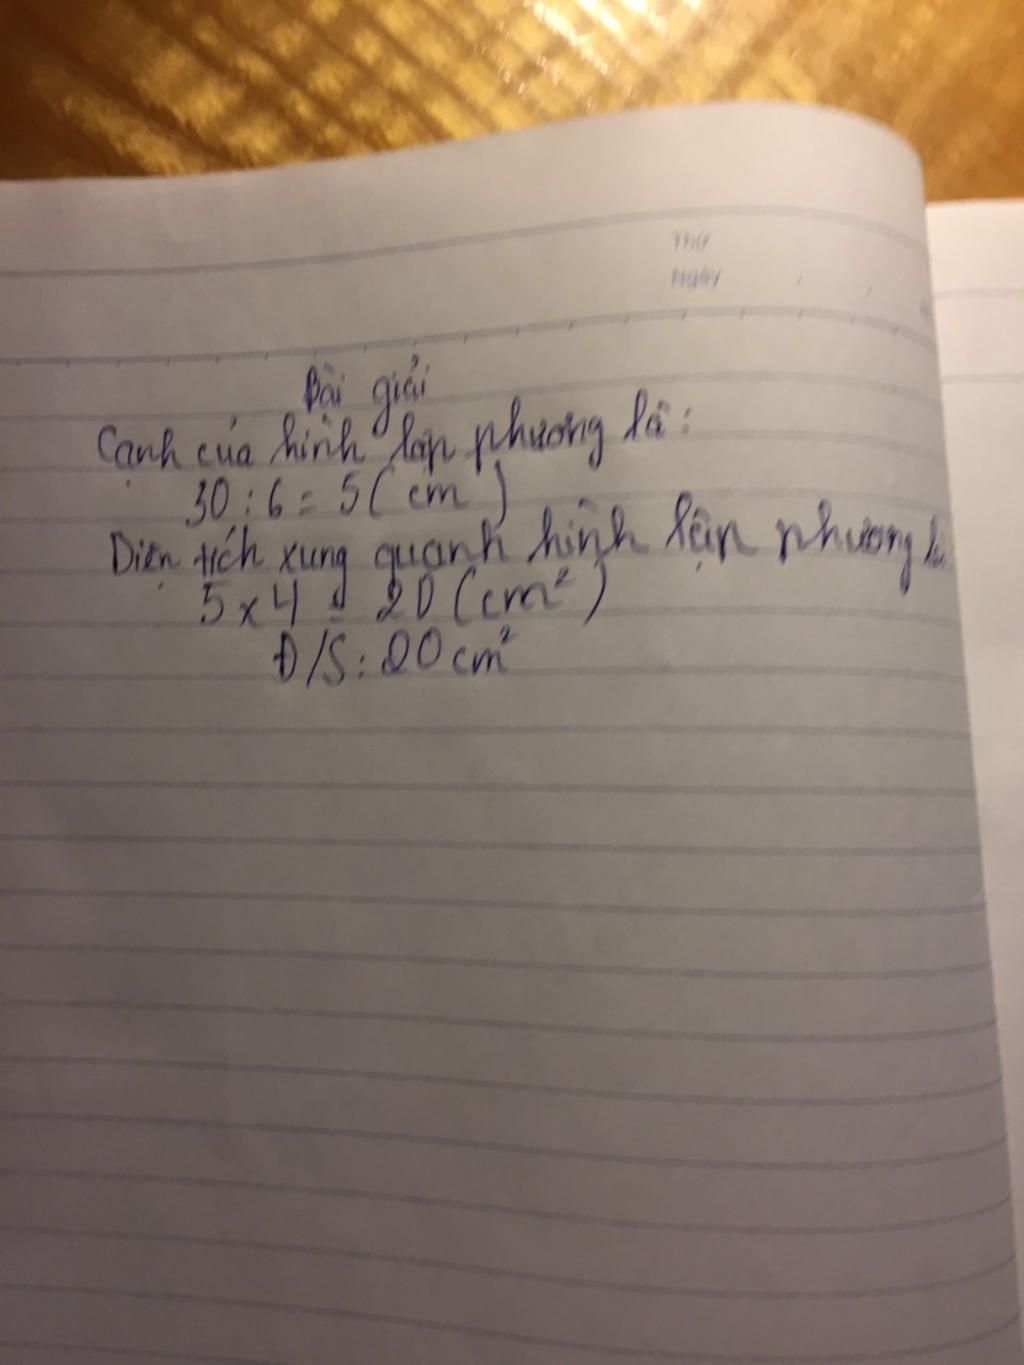 Thứ
Ngày
Bài giải
Cạnh của hình lập phương là:
30 : 6 = 5 ( cm )
Diện tích xung quanh hình lập phương là:
5 x 4 = 20 (cm²)
Đ/S: 20 cm²